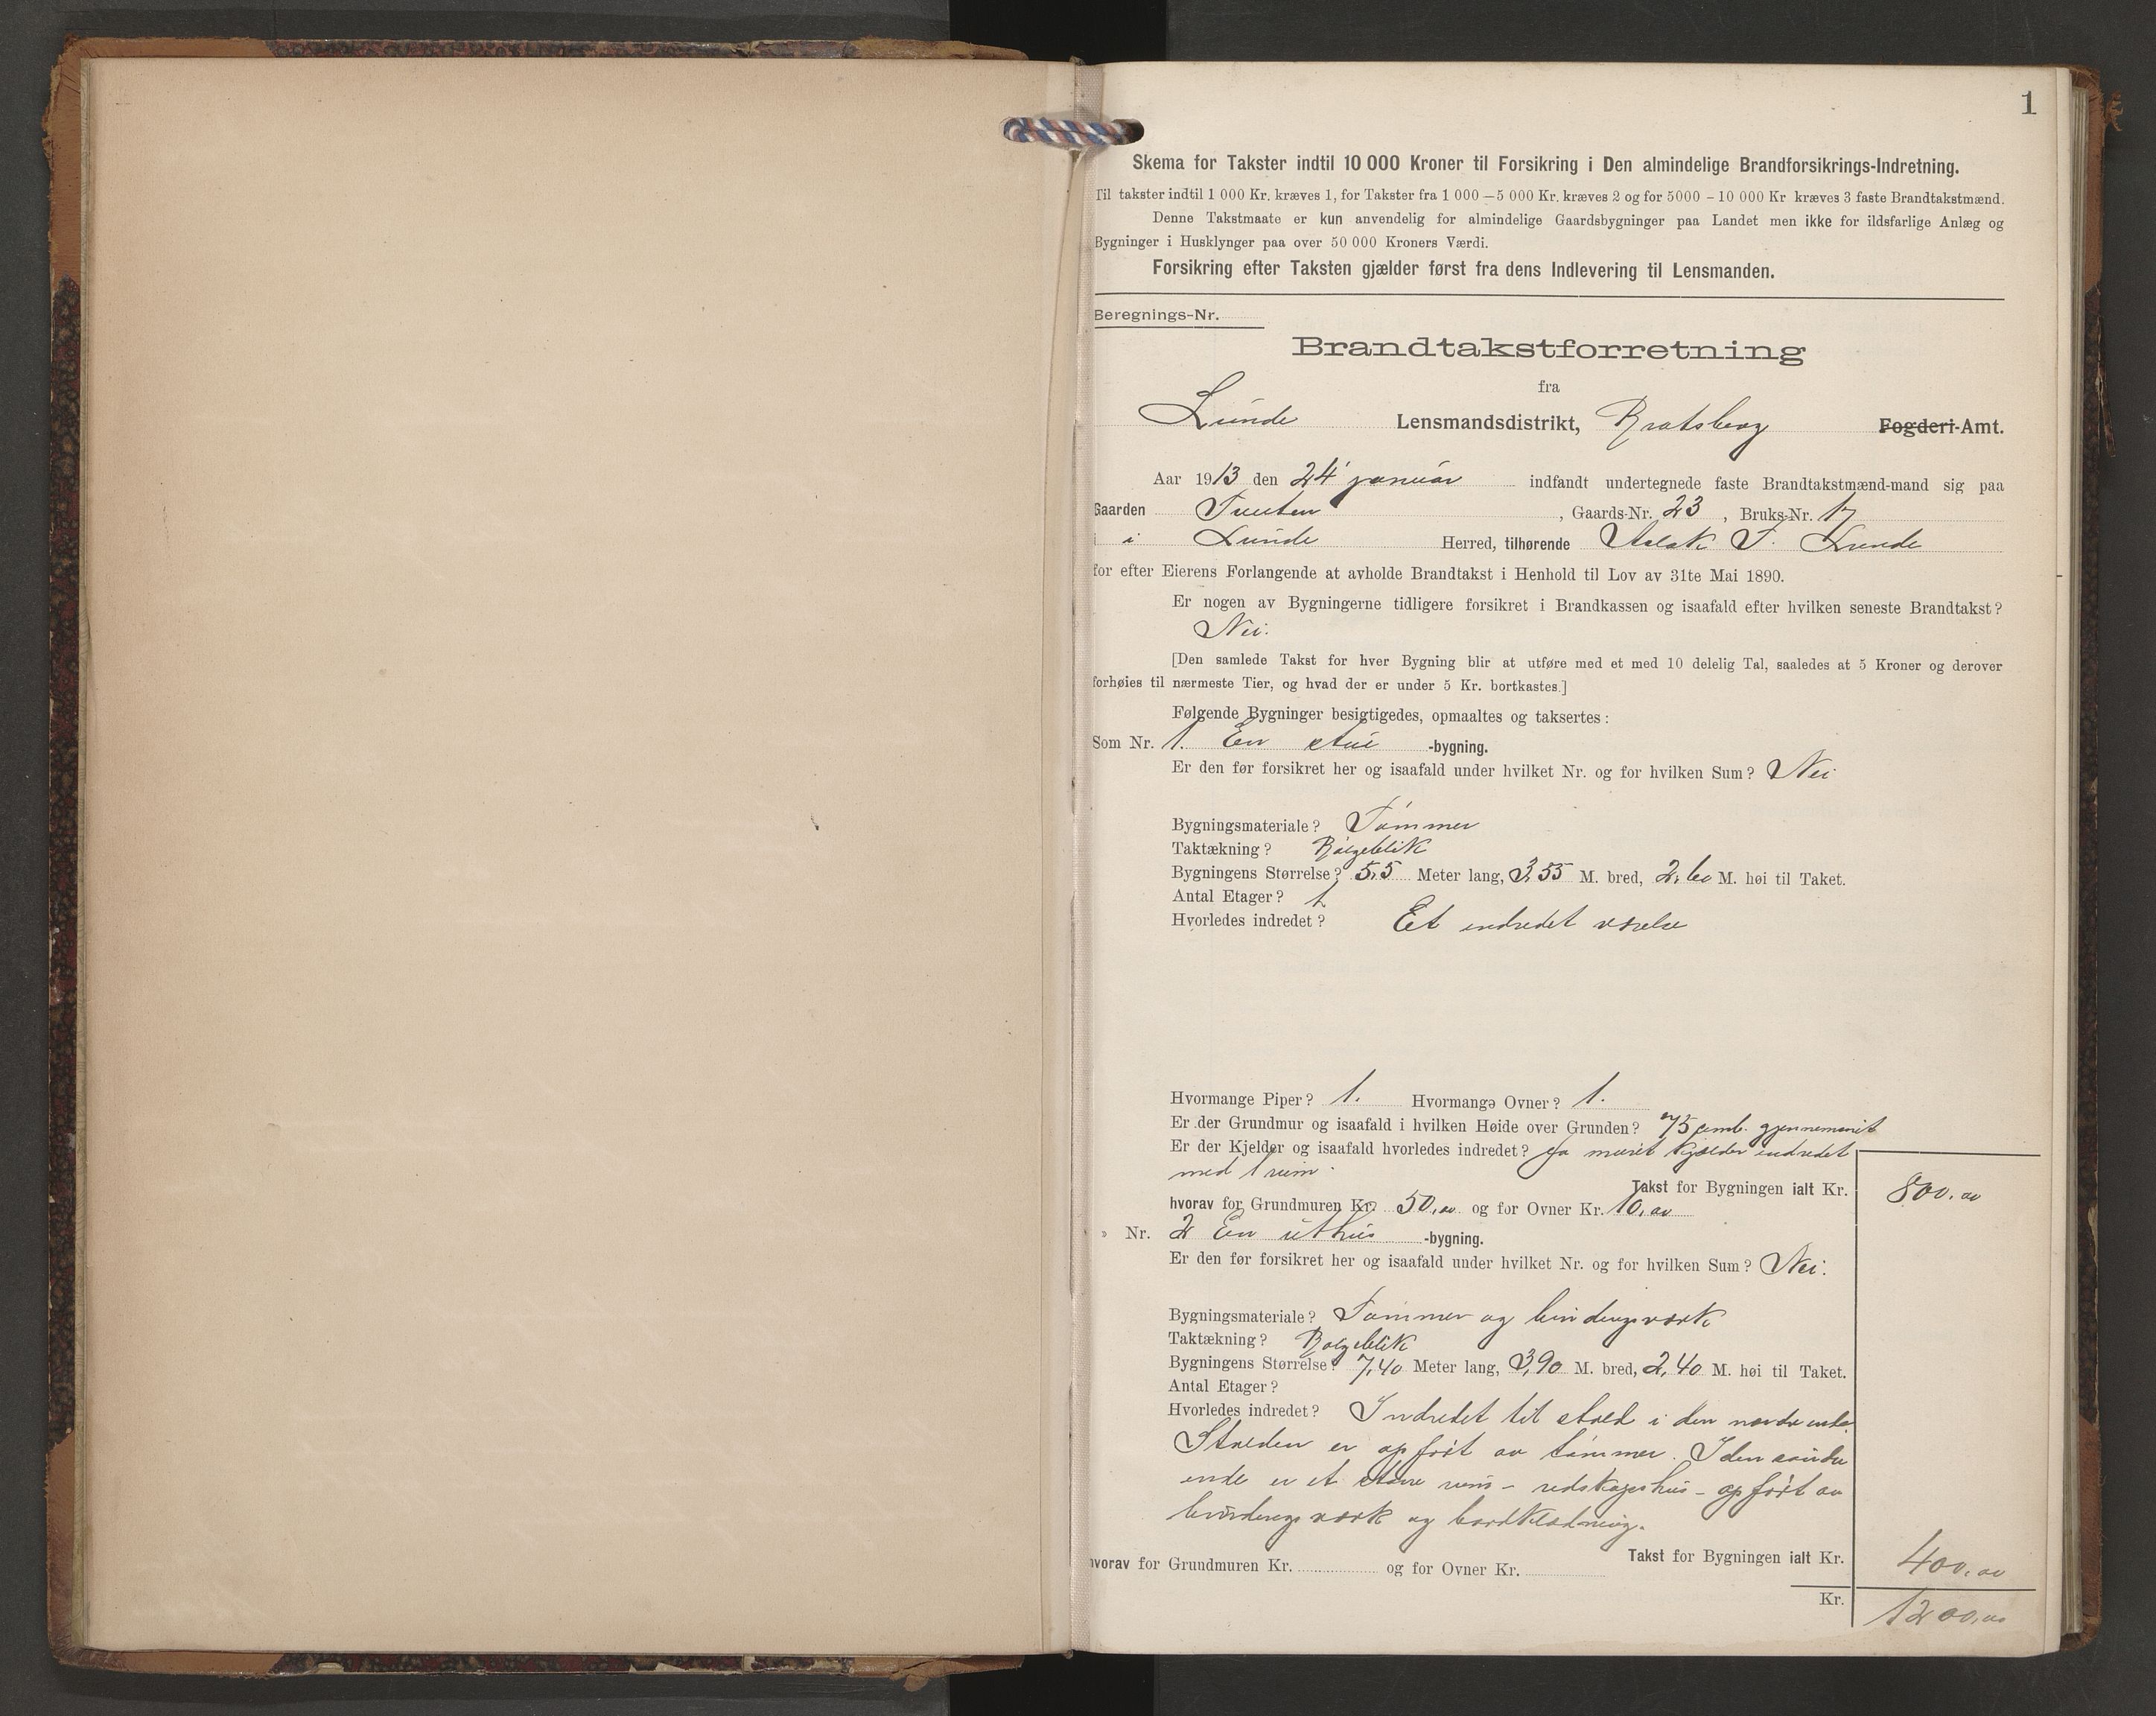 1
Skema for Takster indtil 10 000 Kroner til Forsikring i Den almindelige Brandforsikrings-Indretning.
Til takster indtil 1 000 Kr. kræves 1, for Takster fra 1 000 – 5 000 Kr. kræves 2 og for 5000 - 10 000 Kr kræves 3 faste Brandtakstmænd.
Denne Takstmaate er kun anvendelig for almindelige Gaardsbygninger paa Landet men ikke for ildsfarlige Anlæg og
Bygninger i Husklynger paa over 50 000 Kroners Værdi.
Forsikring efter Taksten gjælder først fra dens Indlevering til Lensmanden.
Beregnings-Nr.
Brandtakstforretning
fra
Lunde Lensmandsdistrikt, Bratsberg Fogderi-Amt.
Aar 1913 den 24 januar indfandt undertegnede faste Brandtakstmænd-mand sig paa
Gaarden Tveiten, Gaards-Nr. 23, Bruks-Nr. 17
i i Lunde Herred, tilhørende Aslak T. Lunde
for efter Eierens Forlangende at avholde Brandtakst i Henhold til Lov av 31te Mai 1890.
Er nogen av Bygningerne tidligere forsikret i Brandkassen og isaafald efter hvilken seneste Brandtakst?
Nei.
[Den samlede Takst for hver Bygning blir at utføre med et med 10 delelig Tal, saaledes at 5 Kroner og derover
forhøies til nærmeste Tier, og hvad der er under 5 Kr. bortkastes.]
Følgende Bygninger besigtigedes, opmaaltes og taksertes:
Som Nr. 1. En stue -bygning.
Er den før forsikret her og isaafald under hvilket Nr. og for hvilken Sum? Nei
Bygningsmateriale? Tømmer
Taktækning? Bølgeblik
Bygningens Størrelse? 5,5 Meter lang, 3,55 M. bred, 2,60 M. høi til Taket.
Antal Etager? 1
Hvorledes indredet? Et indredet værelse
Hvormange Piper? 1. Hvormange Ovner? 1.
Er der Grundmur og isaafald i hvilken Høide over Grunden? 75 cmt. gjennemsnit
Er der Kjelder og isaafald hvorledes indredet? Ja muret kjælder indredet
med 1 rum.
Takst for Bygningen ialt Kr. 800,00
hvorav for Grundmuren Kr. 50,00 og for Ovner Kr. 10,00
» Nr. 2 En uthus -bygning.
Er den før forsikret her og isaafald under hvilket Nr. og for hvilken Sum? Nei.
Bygningsmateriale? Tømmer og bindingsværk
Taktækning? Bølgeblik
Bygningens Størrelse? 7,40 Meter lang, 3,90 M. bred, 2,40 M. høi til Taket.
Antal Etager?
Hvorledes indredet? Indredet til stald i den nordre ende.
Stalden er opført av tømmer. I den søndre
ende er et større rum - redskapshus - opført av
bindingsværk og bordklædning.
Takst for Bygningen ialt Kr. 400,00
hvorav for Grundmuren Kr. og for Ovner Kr.
Kr. 1200,00